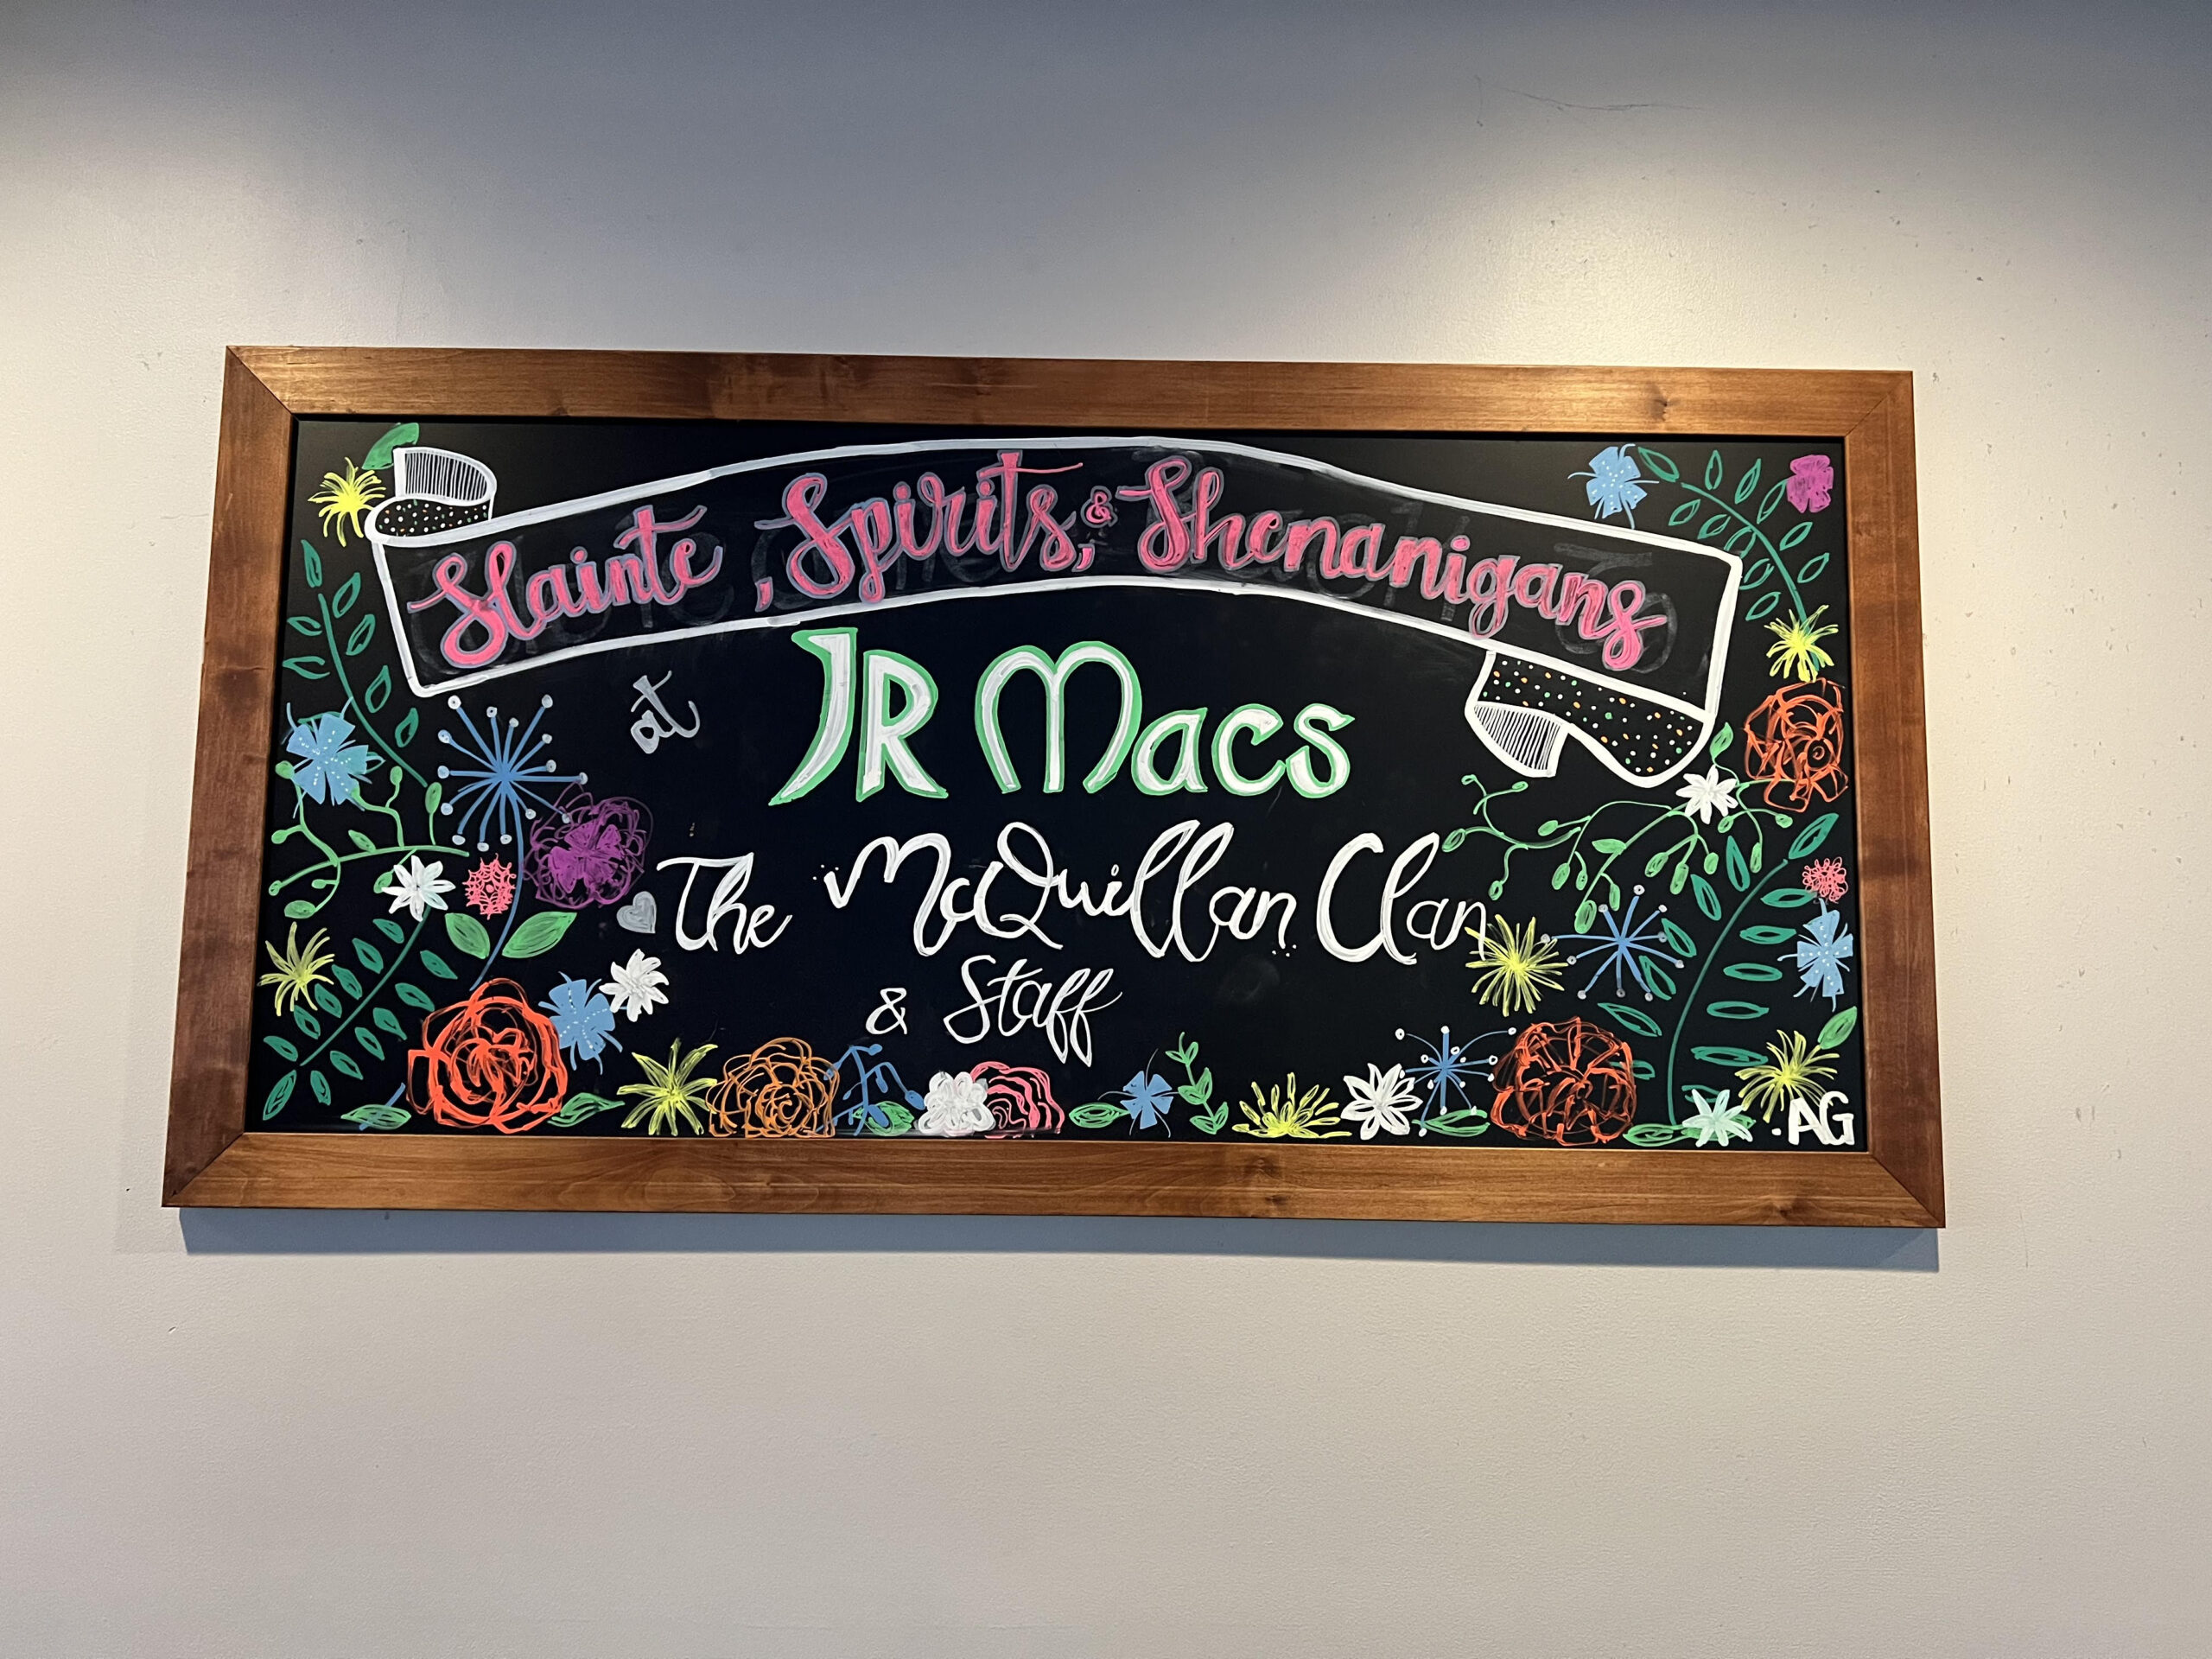 Slainte, Spirits, & Shenanigans
at JR Macs
The McQuillan Clan
& Staff
.AG